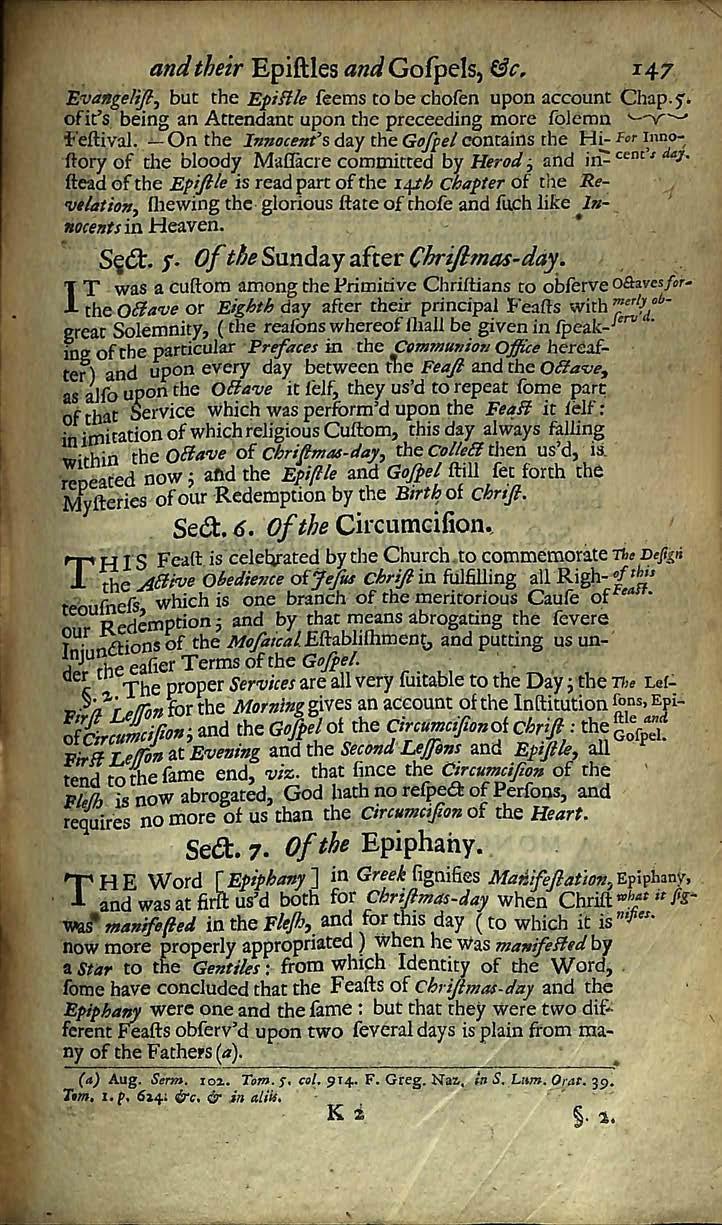 and their Epiſtles and Goſpels, &c. 147
Evangeliſt, but the Epiſtle ſeems to be choſen upon account
of it's being an Attendant upon the preceeding more ſolemn
Feſtival. — On the Innocent's day the Goſpel contains the Hi-
ſtory of the bloody Maſſacre committed by Herod; and in-
ſtead of the Epiſtle is read part of the 14th Chapter of the Re-
velation, ſhewing the glorious ſtate of thoſe and ſuch like In-
nocents in Heaven.
Chap. 5.
For Inno-
cent's day.
Sect. 5. Of the Sunday after Chriſtmas-day.
IT was a cuſtom among the Primitive Chriſtians to obſerve
the Octave or Eighth day after their principal Feaſts with
great Solemnity, (the reaſons whereof ſhall be given in ſpeak-
ing of the particular Prefaces in the Communion Office hereaf-
ter) and upon every day between the Feaſt and the Octave,
as alſo upon the Octave it ſelf, they us'd to repeat ſome part
of that Service which was perform'd upon the Feaſt it ſelf:
in imitation of which religious Cuſtom, this day always falling
within the Octave of Chriſtmas-day, the Collect then us'd, is
repeated now; and the Epiſtle and Goſpel ſtill ſet forth the
Myſteries of our Redemption by the Birth of Chriſt.
Octaves for-
merly ob-
ſerv'd.
Sect. 6. Of the Circumciſion.
THIS Feaſt is celebrated by the Church to commemorate
the Active Obedience of Jeſus Chriſt in fulfilling all Righ-
teouſneſs, which is one branch of the meritorious Cauſe of
our Redemption; and by that means abrogating the ſevere
Injunctions of the Moſaical Eſtabliſhment, and putting us un-
der the eaſier Terms of the Goſpel.
The Deſign
of this
Feaſt.
§. 2. The proper Services are all very ſuitable to the Day; the
Firſt Leſſon for the Morning gives an account of the Inſtitution
of Circumciſion; and the Goſpel of the Circumciſion of Chriſt: the
Firſt Leſſon at Evening and the Second Leſſons and Epiſtle, all
tend to the ſame end, viz. that ſince the Circumciſion of the
Fleſh is now abrogated, God hath no reſpect of Perſons, and
requires no more of us than the Circumciſion of the Heart.
The Leſ-
ſons, Epi-
ſtle and
Goſpel.
Sect. 7. Of the Epiphany.
THE Word [Epiphany] in Greek ſignifies Manifeſtation,
and was at firſt us'd both for Chriſtmas-day when Chriſt
was manifeſted in the Fleſh, and for this day (to which it is
now more properly appropriated) when he was manifeſted by
a Star to the Gentiles: from which Identity of the Word,
ſome have concluded that the Feaſts of Chriſtmas-day and the
Epiphany were one and the ſame: but that they were two dif-
ferent Feaſts obſerv'd upon two ſeveral days is plain from ma-
ny of the Fathers (a).
Epiphany,
what it ſig-
nifies.
(a) Aug. Serm. 102. Tom. 5. col. 914. F. Greg. Naz. in S. Lum. Orat. 39.
Tom. 1. p. 624. &c. & in aliis.
K 2 §. 2.